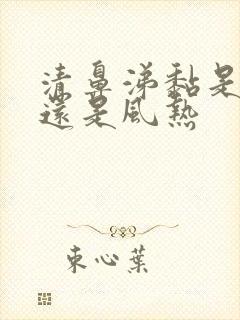 清鼻涕黏是
還是風熱
束心葉